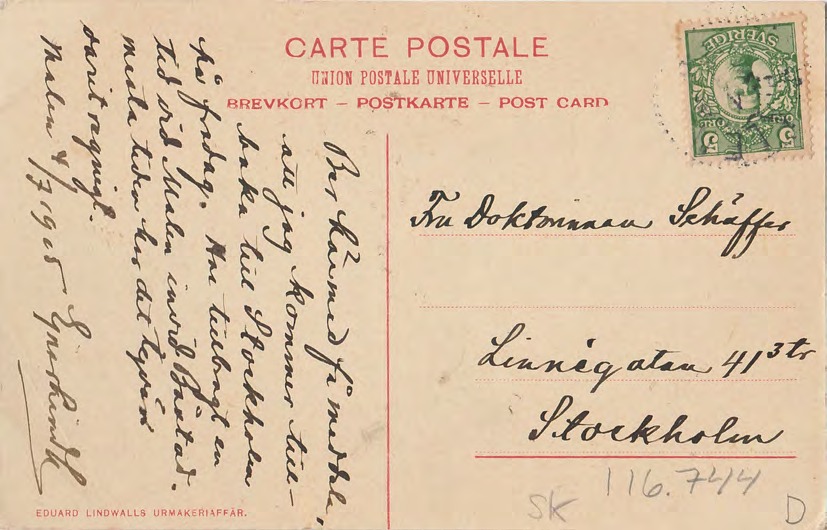 CARTE POSTALE
UNION POSTALE UNIVERSELLE
BREVKORT – POSTKARTE – POST CARD
SVERIGE
5 ÖRE 5
Ber härmed få meddela,
att jag kommer till-
baka till Stockholm
på fredag. Har tillbragt en
tid vid Malen invid Båstad.
mesta tiden har det
varit regnigt.
Malen 4/7 1915
Fru Doktorinnan Schäffer
Linnégatan 41 3 tr
Stockholm
EDUARD LINDWALLS URMAKERIAFFÄR.
SK 116.744 D